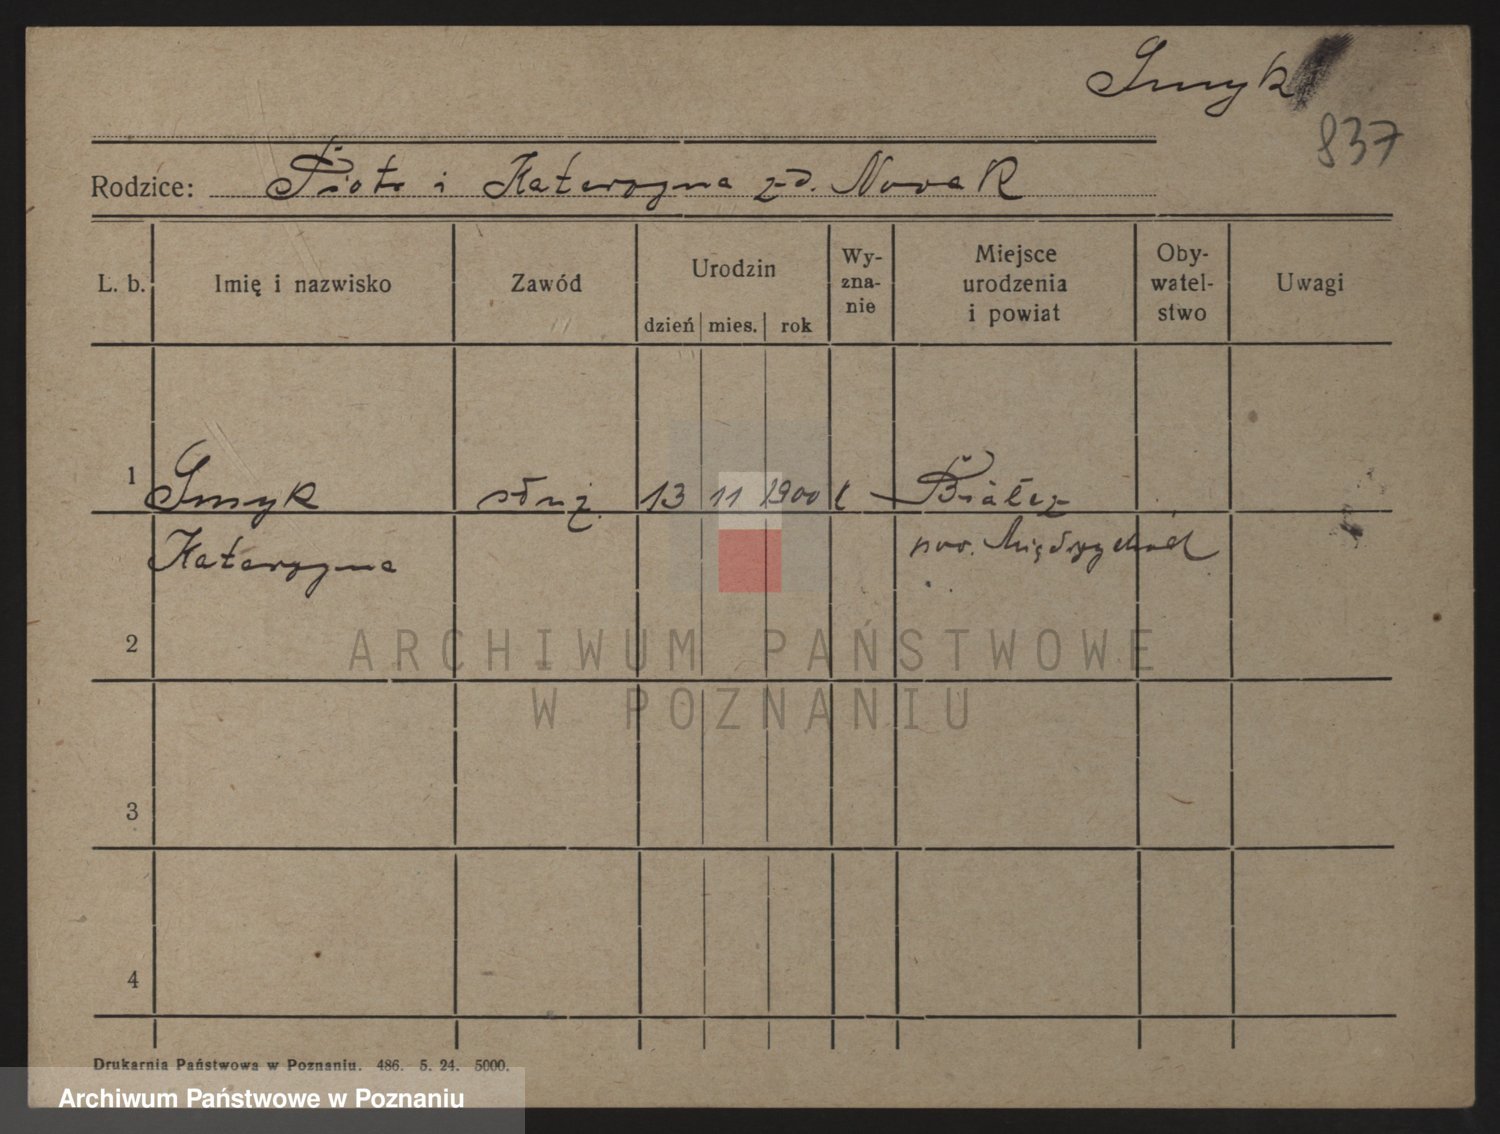 Smyk
837
Rodzice: Piotr i Katarzyna z d. Nowak
L. b. Imię i nazwisko Zawód Urodzin dzień mies. rok Wy-zna-nie Miejsce urodzenia i powiat Oby-watel-stwo Uwagi
1 Smyk służ. 13 11 1900 Białcz
Katarzyna pow. Międzychód
2
ARCHIWUM PAŃSTWOWE
W POZNANIU
3
4
Drukarnia Państwowa w Poznaniu. 486. 5. 24. 5000.
Archiwum Państwowe w Poznaniu